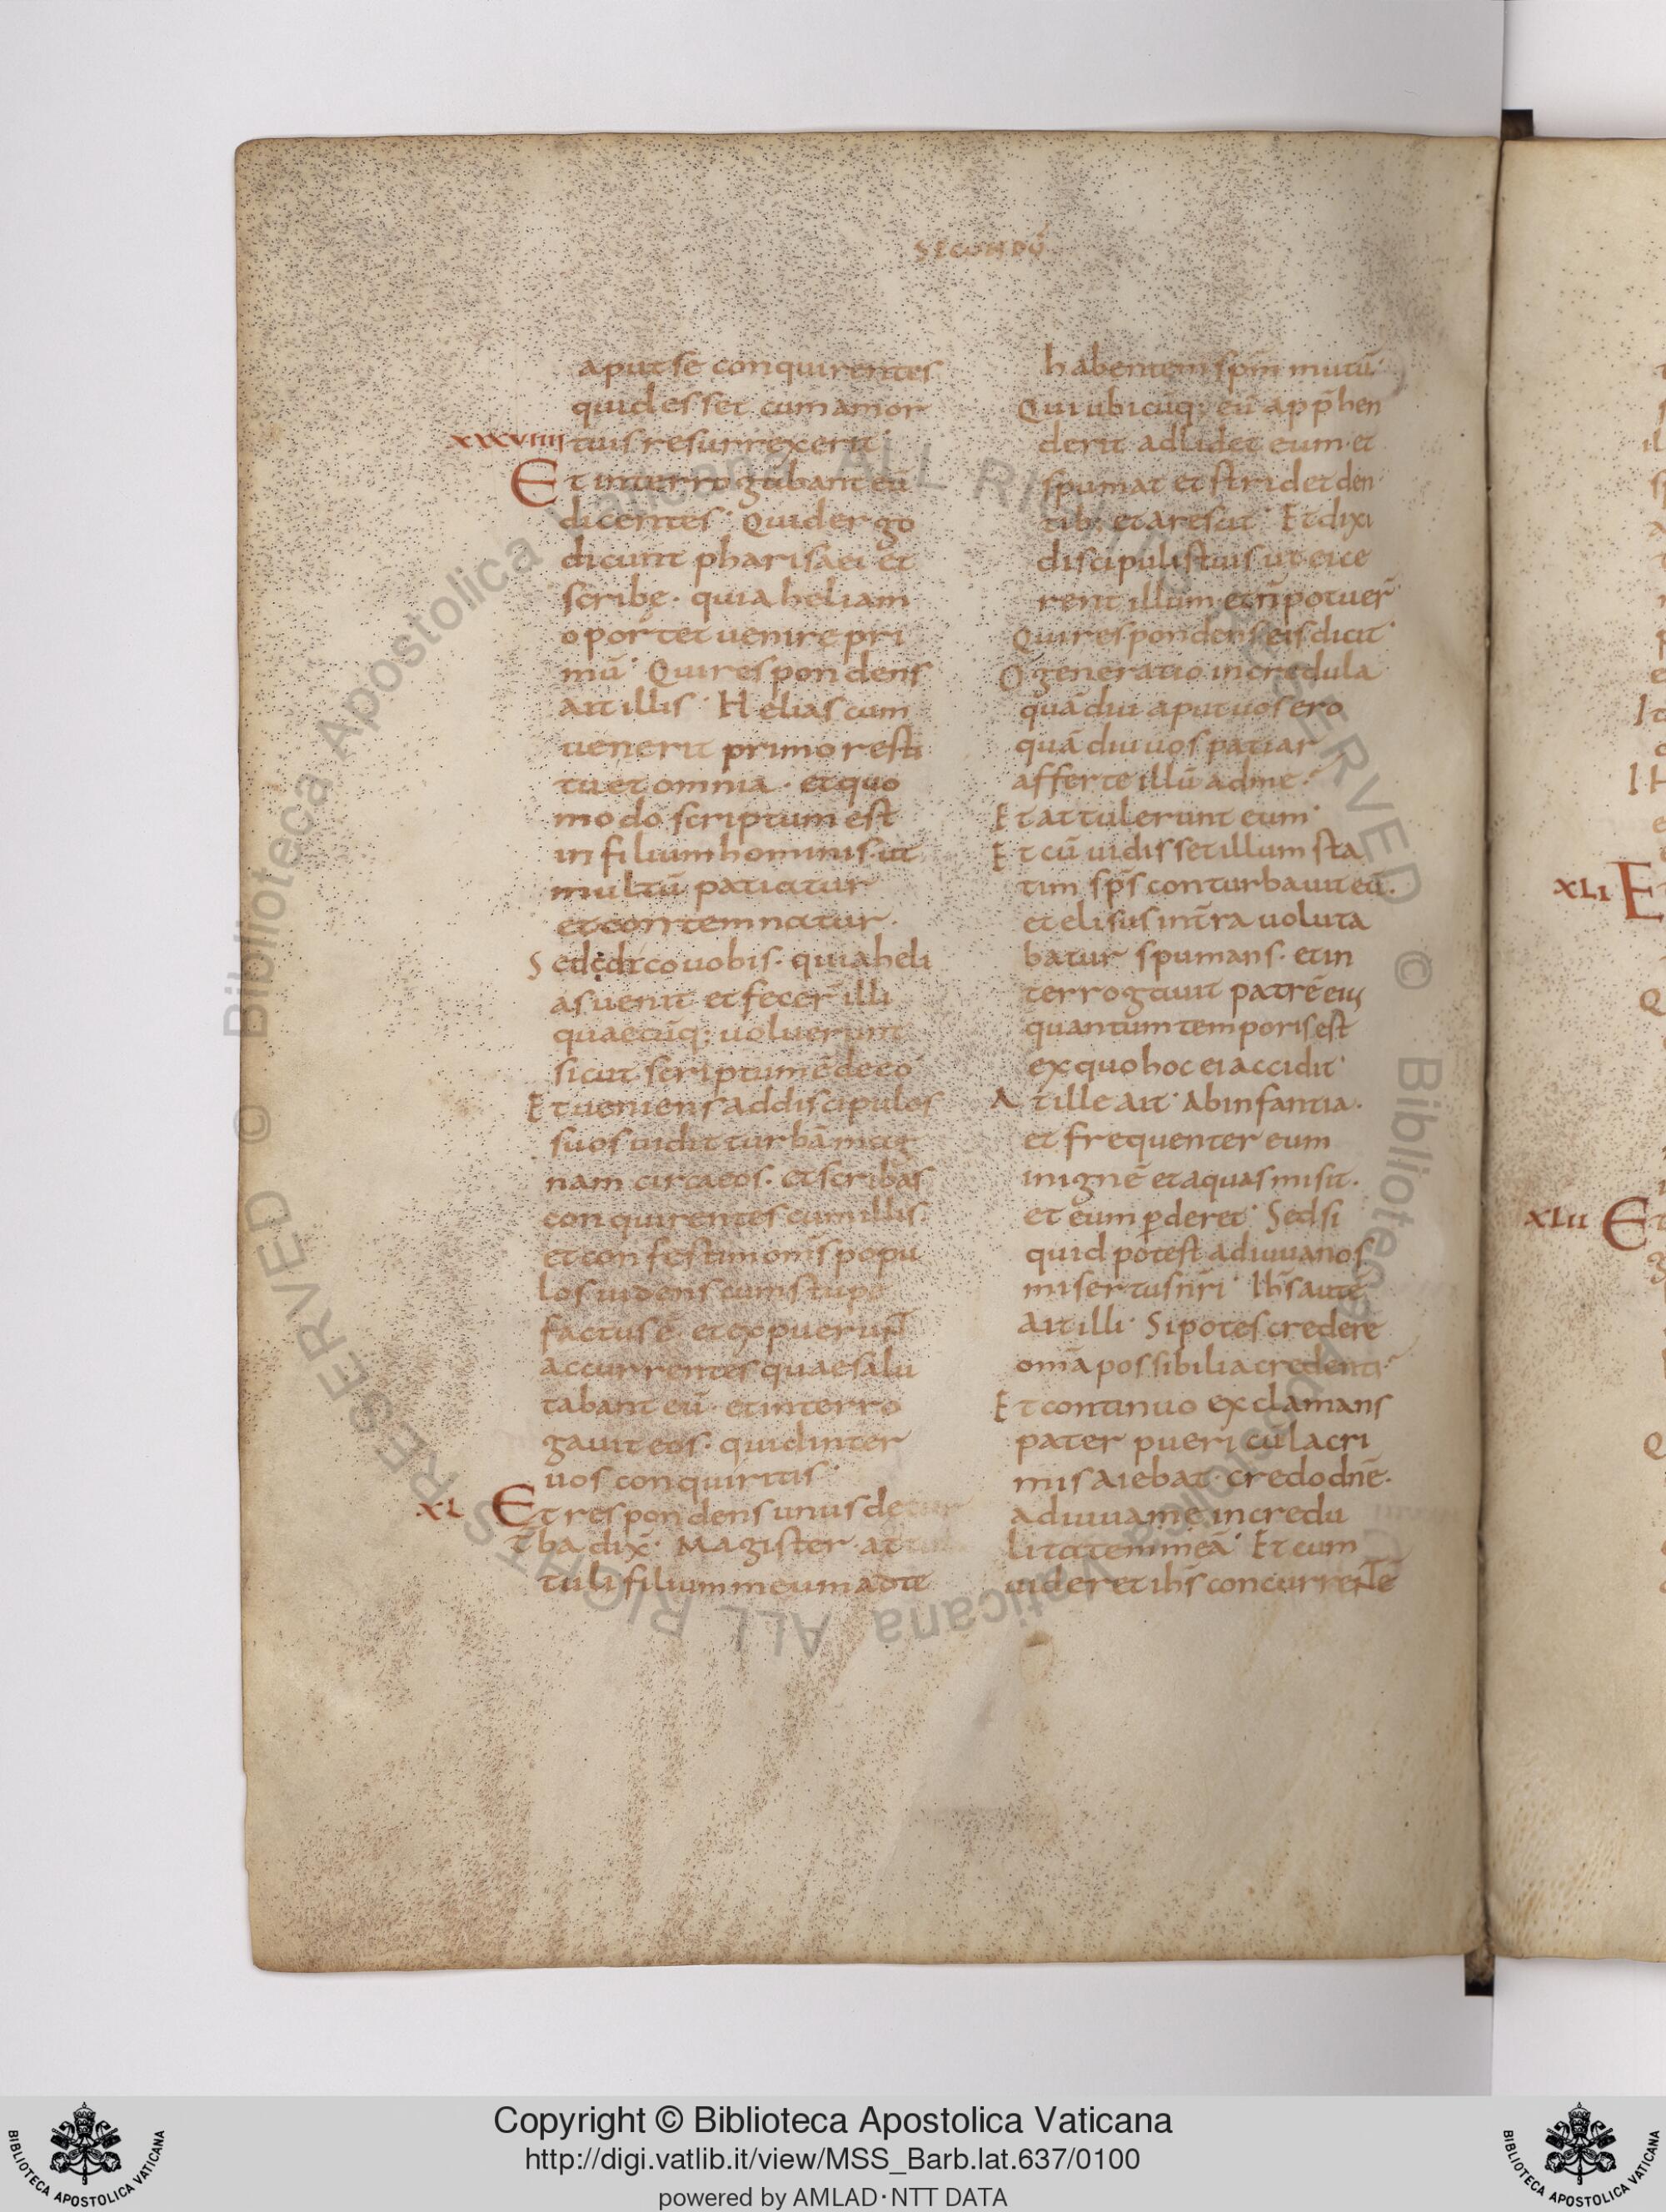 SECUNDŪ
aput se conquirentes
quid esset cum amor
XXXVIIII tuis resurrexerit
Et interrogabant eū
dicentes · Quid ergo
dicunt pharisaei et
scribę · quia heliam
oportet uenire pri
mū · Qui respondens
ait illis · Helias cum
uenerit primo resti
tuet omnia · et quo
modo scriptum est
in filium hominis · ut
multū patiatur
et contemnatur ·
Sed dico uobis · quia heli
as uenit et fecer̄ illi
quaecūq; uoluerunt
sicut scriptum ē de eo
Et ueniens ad discipulos
suos uidit turbā mag
nam circa eos · et scribas
conquirentes cum illis ·
et confestim om̄s popu
los uidens eum stupe
factus ē et expauerunt
accurrentes quae salu
tabant eū · et interro
gauit eos · quid inter
uos conquiritis ·
XL Et respondens unus de tur
ba dix̄ · Magister · at
tuli filium meum ad te
habentem sp̄m mutū ·
Qui ubicūq; eū app̄hen
derit adlidet eum · et
spumat et stridet den
tib; et arescit · Et dixi
discipulis tuis ut eice
rent illum · et n̄ potuer̄
Qui respondens eis dicit ·
O generatio incredula
quādiu aput uos ero
quādiu uos patiar
afferte illū ad me ·
Et attulerunt eum ·
Et cū uidisset illum sta
tim sp̄s conturbauit eū ·
et elisus in t̄ra uoluta
batur spumans · et in
terrogauit patrē eius
quantum temporis est
ex quo hoc ei accidit ·
At ille ait · Ab infantia ·
et frequenter eum
in ignē et aquas misit ·
et eum p̄deret · Sed si
quid potest adiuua nos
misertus n̄ri · Ih̄s autē
ait illi · Si potes credere
om̄a possibilia credenti ·
Et continuo exclamans
pater pueri cū lacri
mis aiebat · credo dn̄e ·
adiuua me incredu
litatem meā · Et cum
uideret ih̄s concurrentē
XLI
XLII
© Biblioteca Apostolica Vaticana ALL RIGHTS RESERVED
© Biblioteca Apostolica Vaticana ALL RIGHTS RESERVED
BIBLIOTECA APOSTOLICA VATICANA
Copyright © Biblioteca Apostolica Vaticana
http://digi.vatlib.it/view/MSS_Barb.lat.637/0100
powered by AMLAD·NTT DATA
BIBLIOTECA APOSTOLICA VATICANA